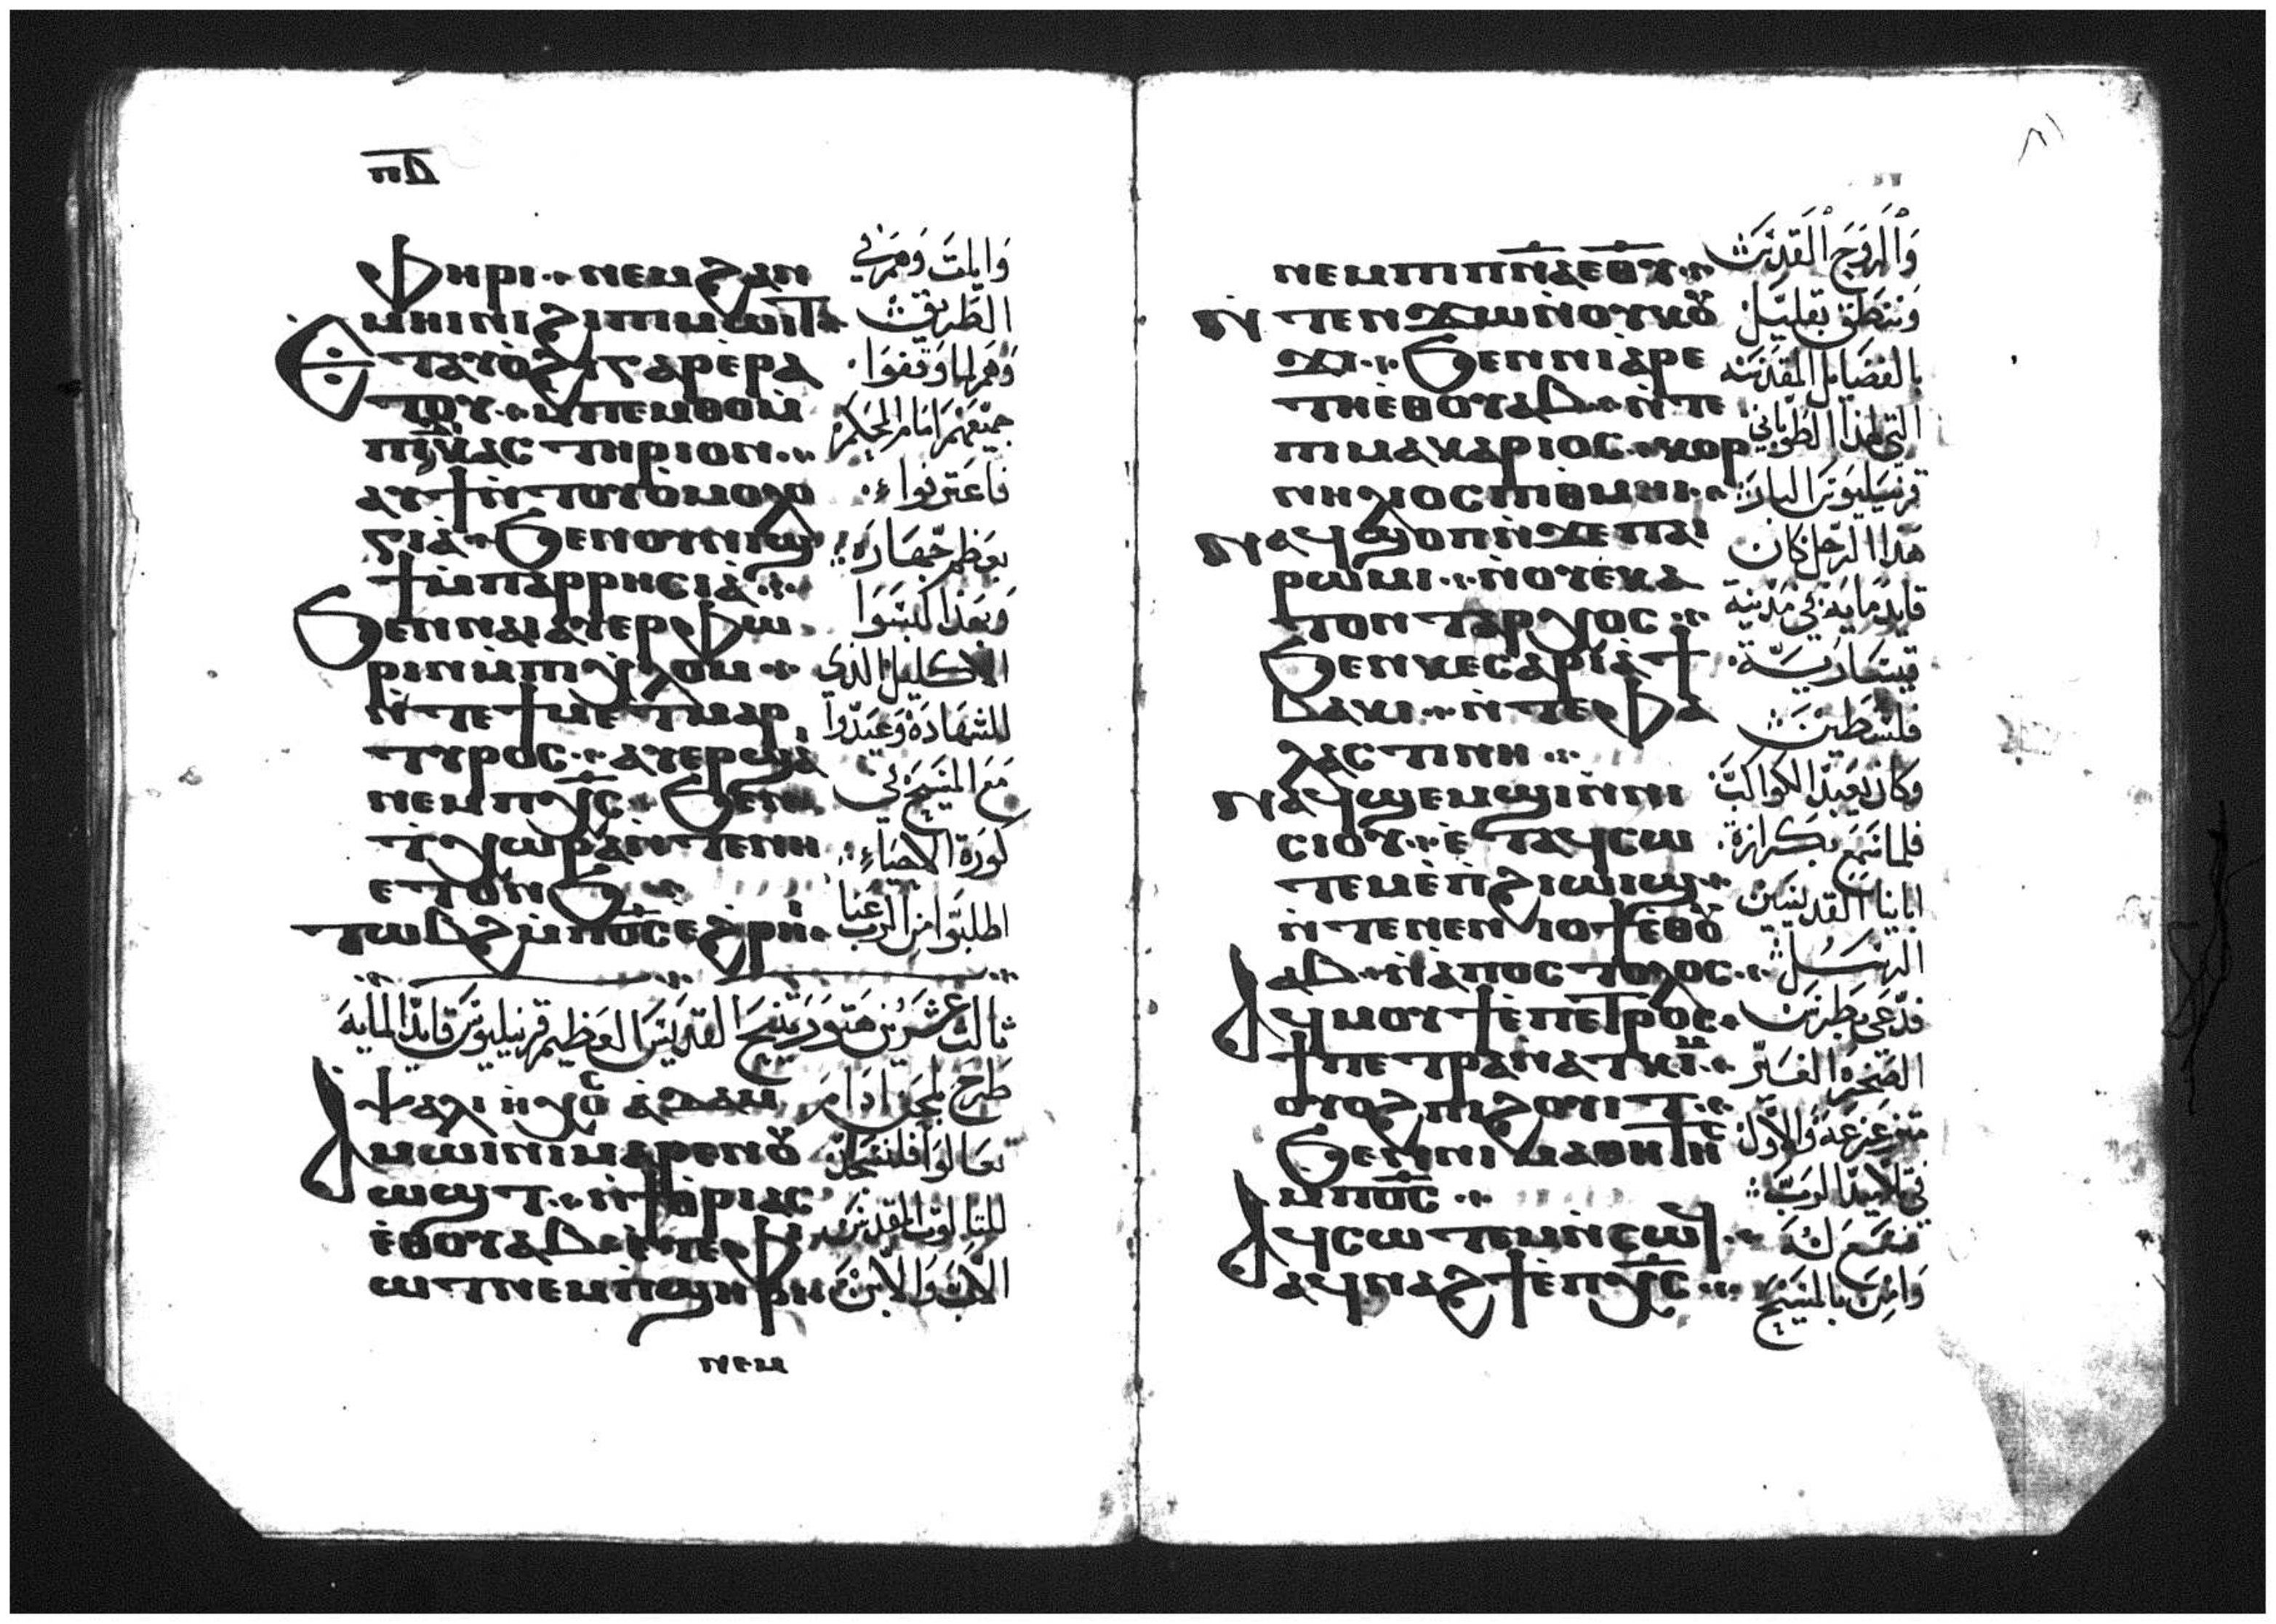 ⲡⲇ
ⲫⲏⲣⲓ ⲛⲉⲙ ϩⲁⲛ
ⲙⲏⲓⲛⲓ ϩⲓ ⲡⲓⲙⲱⲓⲧ
ⲉⲧⲁⲩⲟϩⲓ ⲅⲁⲣ ⲉⲣⲁ
ⲧⲟⲩ ⲙⲡⲉⲙⲑⲟ ⲙ
ⲁⲩϯ ⲛⲧⲟⲩⲟⲙⲟⲗⲟ
ⲅⲓⲁ ϧⲉⲛ ⲟⲩⲛⲓϣ
ϯ ⲙⲡⲁⲣⲣⲏⲥⲓⲁ
ϧⲉⲛ ⲛⲁⲓ ⲁⲩⲉⲣⲫⲱ
ⲣⲓⲛ ⲙⲡⲓⲭⲗⲟⲙ
ⲛⲧⲉ ϯⲙⲉⲧⲙⲁⲣ
ⲧⲩⲣⲟⲥ ⲁⲩⲉⲣϣⲁⲓ
ⲛⲉⲙ ⲡⲭ̅ⲥ̅ ϧⲉⲛ
ⲧⲭⲱⲣⲁ ⲛⲧⲉ ⲛⲏ
ⲉⲧⲟⲛϧ
ⲧⲱⲃϩ ⲙⲡⲟ̅ⲥ̅ ⲉϩⲣⲏⲓ
وايات وهم في
الطريق
وهم لما وقفوا
جميعهم امام الحكم
فاعترفوا
بعظم جهاره
وبهذا لبسوا
الاكليل الذي
للشهاده وعيدوا
مع المسيح في
كورة الاحياء
اطلبوا من الرب عنا
ثالث عشرين هتور نيح القديس العظيم قرنيليوس قايد المايه
ⲯⲁⲗⲓ ⲛⲭⲟ̅ⲥ̅ ⲁⲇⲁⲙ
ⲁⲙⲱⲓⲛⲓ ⲙⲁⲣⲉⲛⲟⲩ
ⲱϣⲧ ⲛϯⲧⲣⲓⲁⲥ
ⲉⲑⲟⲩⲁⲃ ⲉⲧⲉ ⲫⲓ
ⲱⲧ ⲛⲉⲙ ⲡϣⲏⲣⲓ
طرح لحن ادام
تعالوا فلنسجد
للثالوث المقدس
الاب والابن
ⲛⲉⲙ
٨١
ⲛⲉⲙ ⲡⲓⲡⲛ̅ⲁ̅ ⲉⲑⲟⲩ
ⲛⲧⲉⲛϫⲱ ⲛⲟⲩⲕⲟⲩ
ϫⲓ ϧⲉⲛ ⲛⲓⲁⲣⲉ
ⲧⲏ ⲉⲑⲟⲩⲁⲃ ⲛⲧⲉ
ⲡⲓⲙⲁⲕⲁⲣⲓⲟⲥ ⲕⲟⲣ
ⲛⲏⲗⲓⲟⲥ ⲡⲓⲑⲙⲏⲓ
ⲛⲁϥϣⲟⲡ ⲛϫⲉ ⲡⲁⲓ
ⲣⲱⲙⲓ ⲛⲟⲩⲉⲕⲁ
ⲧⲟⲛⲧⲁⲣⲭⲟⲥ
ϧⲉⲛ ⲕⲉⲥⲁⲣⲓⲁ ϯ
ⲃⲁⲕⲓ ⲛⲧⲉ ⲫⲁ
ⲗⲁⲥⲧⲓⲛⲏ
ⲛⲁϥϣⲉⲙϣⲓ ⲛⲛⲓ
ⲥⲓⲟⲩ ⲉⲧⲁϥⲥⲱ
ⲧⲉⲙ ⲉⲡϩⲓⲱⲓϣ
ⲛⲧⲉ ⲛⲉⲛⲓⲟϯ ⲉⲑⲟⲩ
ⲁⲃ ⲛⲁⲡⲟⲥⲧⲟⲗⲟⲥ
ⲁϥⲙⲟⲩϯ ⲉⲡⲉⲧⲣⲟⲥ
ϯⲡⲉⲧⲣⲁ ⲛⲁⲧⲕⲓⲙ
ⲟⲩⲟϩ ⲡⲓϩⲟⲩⲓⲧ
ϧⲉⲛ ⲛⲓⲙⲁⲑⲏⲧⲏⲥ
ⲙⲡⲟ̅ⲥ̅
ⲁϥⲥⲱⲧⲉⲙ ⲛⲥⲱϥ
ⲁϥⲛⲁϩϯ ⲉⲡⲭ̅ⲥ̅
والروح القدس
وننطق بقليل
بالفضايل المقدسه
التي لهذا الطوباني
قرنيليوس البار
هذا الرجل كان
قايد مايه في مدينة
قيسارية
فلسطين
وكان يعبد الكواكب
فلما سمع بكرازة
اباينا القديسين
الرسل
فدعى بطرس
الصخره الغير
متزعزعه والاول
في تلاميذ الرب
فسمع له
وامن بالمسيح